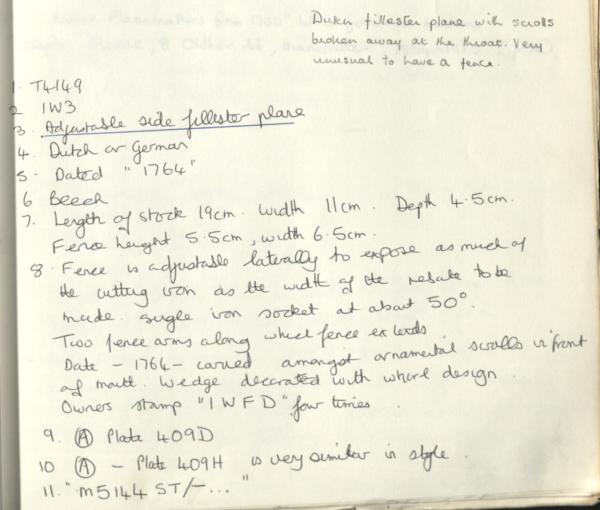 Dutch fillester plane with scrolls
broken away at the throat. Very
unusual to have a fence.
1. T4149
2 1W3
3. Adjustable side fillester plane
4. Dutch or German
5. Dated "1764"
6 Beech
7. Length of stock 19cm. Width 11cm. Depth 4.5cm.
Fence height 5.5cm, width 6.5cm.
8. Fence is adjustable laterally to expose as much of
the cutting iron as the width of the rebate to be
made. Single iron socket at about 50°.
Two fence arms along which fence extends
Date - 1764 - carved amongst ornamental scrolls in front
of mouth. Wedge decorated with whorl design.
Owners stamp "IWFD" four times.
9. (A) Plate 409D
10 (A) - Plate 409H is very similar in style.
11. "M5144 ST/-..."